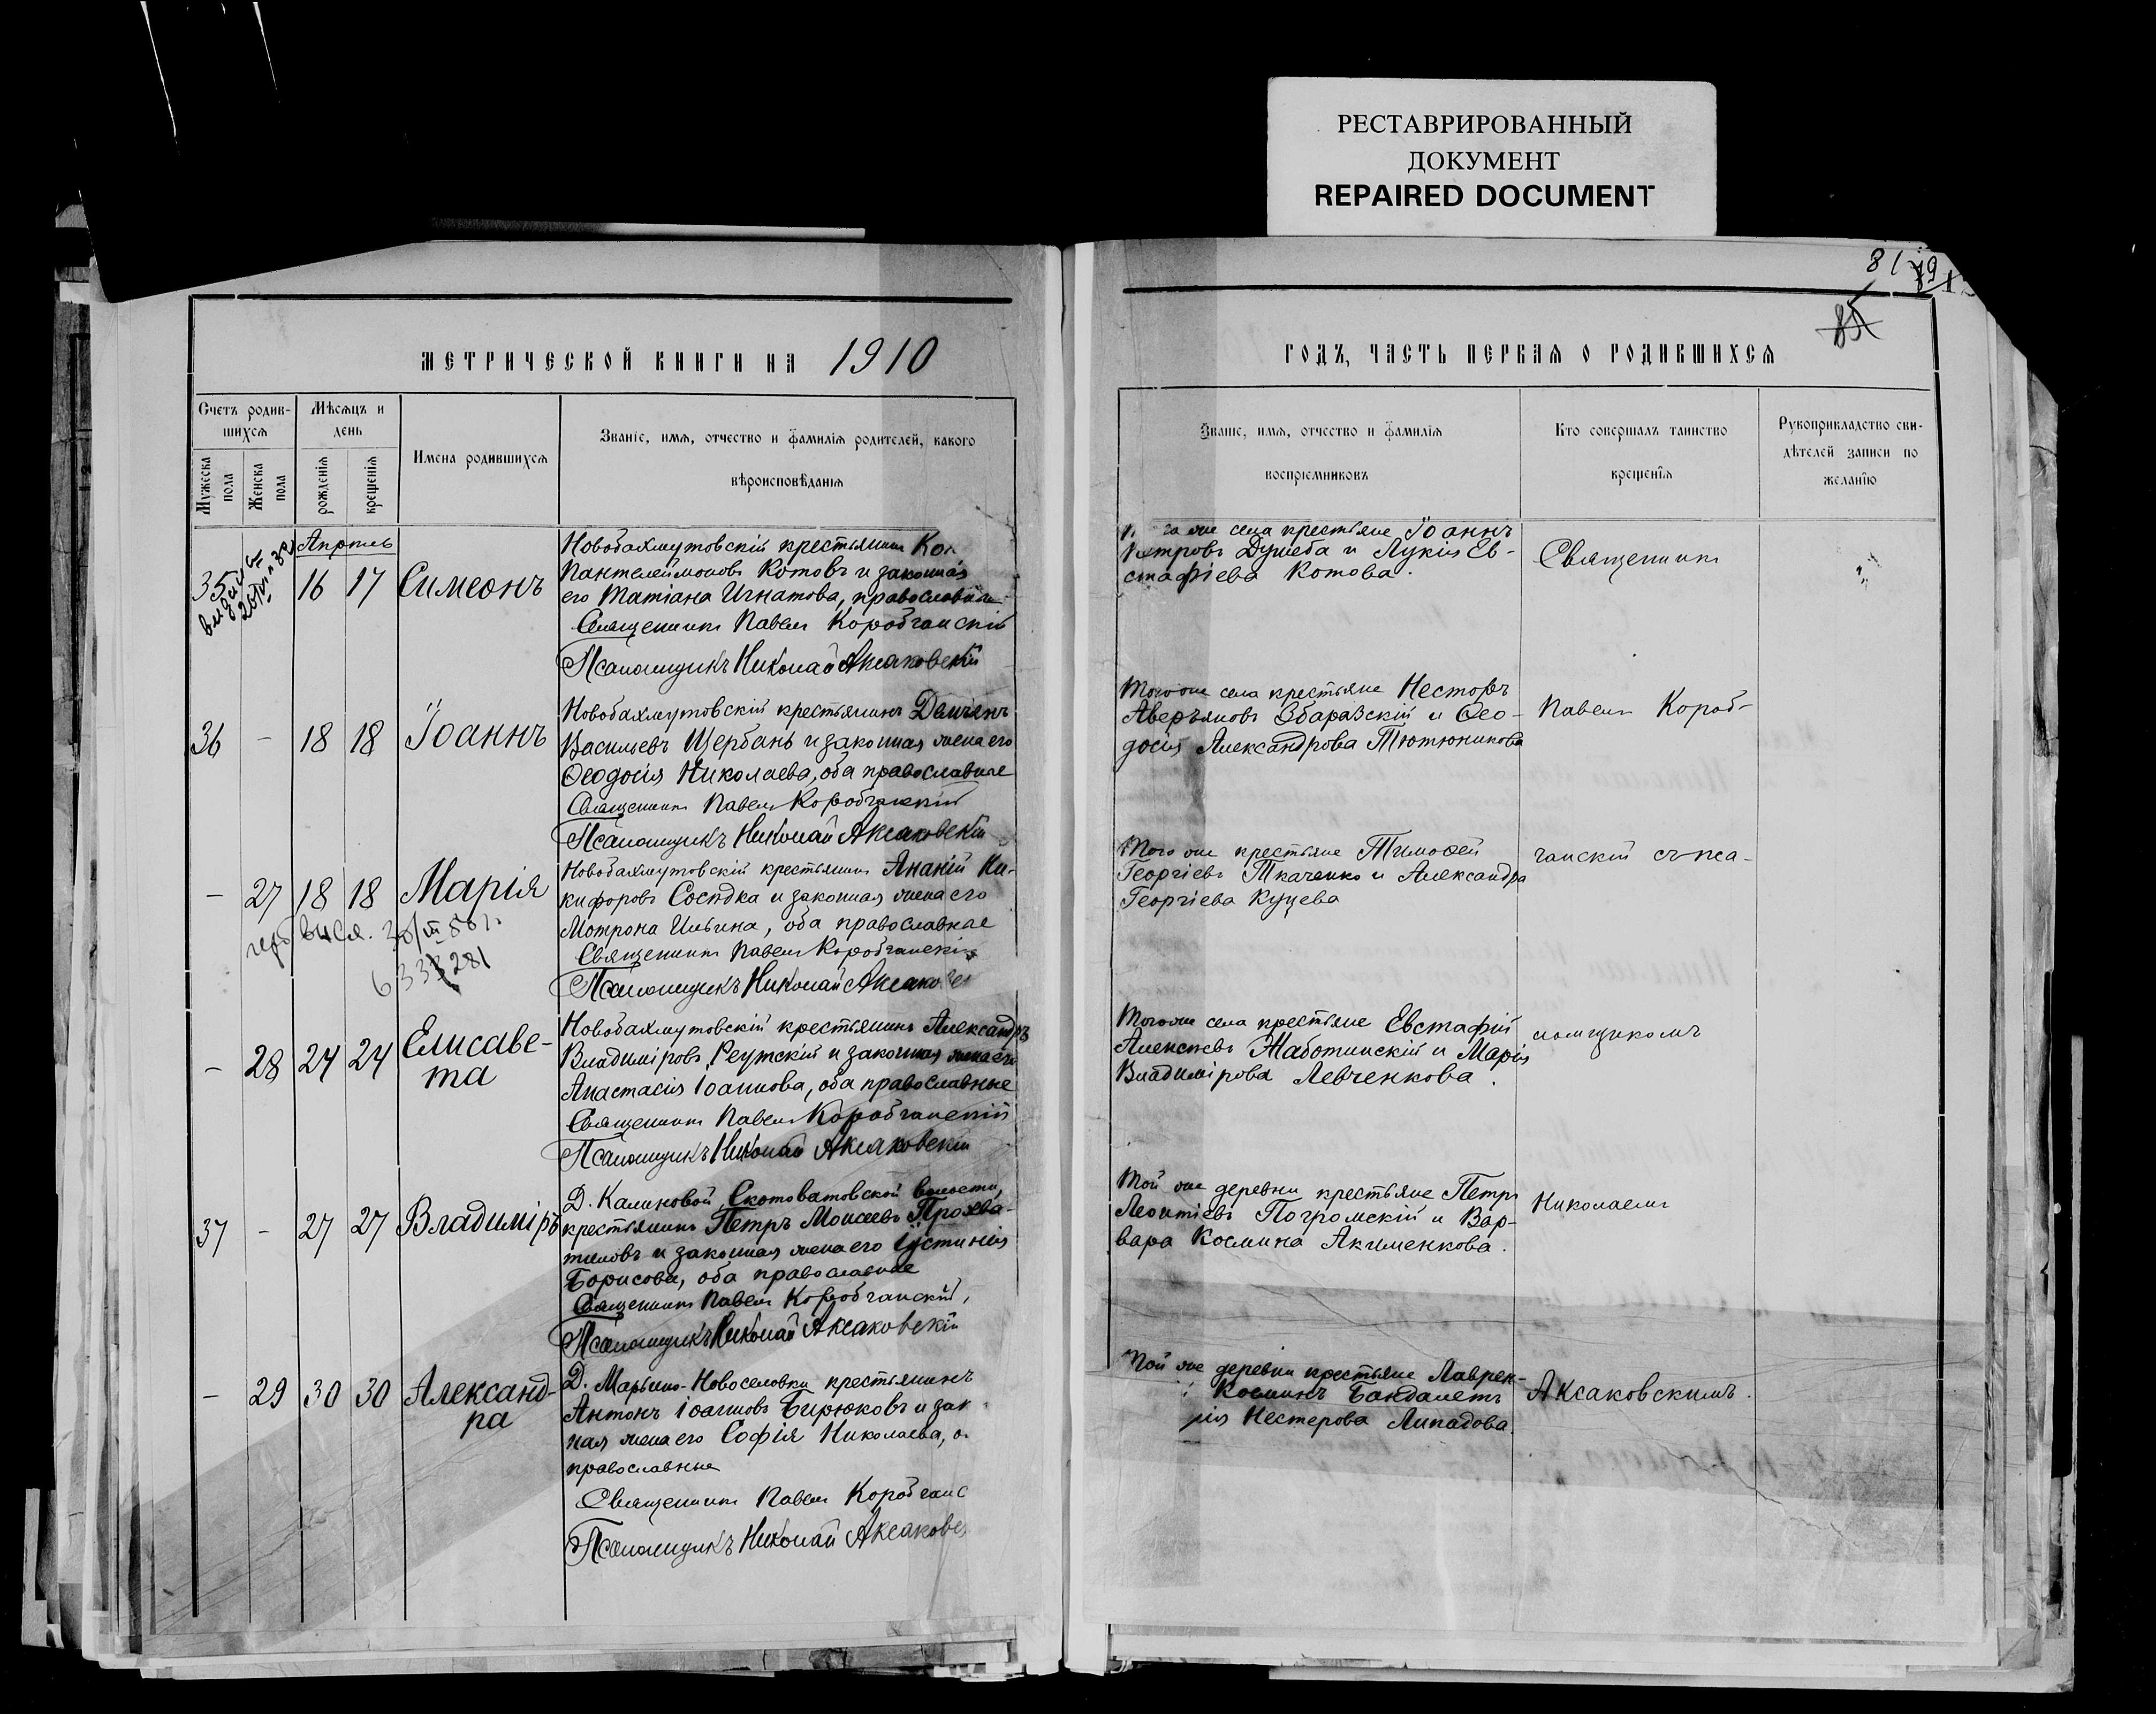 РЕСТАВРИРОВАННЫЙ
ДОКУМЕНТ
REPAIRED DOCUMENT
МЕТРИЧЕСКОЙ КНИГИ НА 1910
Счетъ родив-
шихся
Мужеска
пола
Женска
пола
Мѣсяцъ и
день
рожденія
крещенія
Имена родившихся
Званіе, имя, отчество и фамилія родителей, какого
вѣроисповѣданія
Апрѣль
35
16 17 Симеонъ
Новобахмутовскій крестьянинъ
Пантелеймоновъ Котовъ и законная
его Татіана Игнатова, православные
Священникъ Павелъ Коробчанскій
Псаломщикъ Николай Аксаковскій
36 - 18 18 Іоаннъ
Новобахмутовскій крестьянинъ Даміанъ
Васильевъ Щербань и законная жена его
Ѳеодосія Николаева, оба православные
Священникъ Павелъ Коробчанскій
Псаломщикъ Николай Аксаковскій
- 27 18 18 Марія
Новобахмутовскій крестьянинъ Ананій Ни-
кифоровъ Сосѣдка и законная жена его
Мотрона Ильина, оба православные
Священникъ Павелъ Коробчанскій
Псаломщикъ Николай
- 28 24 24 Елисаве-
та
Новобахмутовскій крестьянинъ Александръ
Владиміровъ Реутскій и законная жена его
Анастасія Іоаннова, оба православные
Священникъ Павелъ Коробчанскій
Псаломщикъ Николай Аксаковскій
37 - 27 27 Владиміръ
Д. Калиновой, Скотоватовской волости,
крестьянинъ Петръ Моисеевъ Прохва-
тиловъ и законная жена его Іустинія
Борисова, оба православные
Священникъ Павелъ Коробчанскій,
Псаломщикъ Николай Аксаковскій
- 29 30 30 Александ-
ра
Д. Марьино-Новоселовки крестьянинъ
Антонъ Іоанновъ Бирюковъ и зак
ная жена его Софія Николаева, о
православные
Священникъ Павелъ Коробчанс
Псаломщикъ Николай Аксаковс
81
85
ГОДЪ, ЧАСТЬ ПЕРВАЯ О РОДИВШИХСЯ
Званіе, имя, отчество и фамилія
воспріемниковъ
Кто совершалъ таинство
крещенія
Рукоприкладство сви-
дѣтелей записи по
желанію
го же села крестьяне Іоаннъ
Петровъ Душеба и Лукія Ев-
стафіева Котова.
Священникъ
Того же села крестьяне Несторъ
Аверьяновъ Збаразскій и Ѳео-
досія Александрова Тютюникова
Павелъ Короб-
Того же крестьяне Тимоѳей
Георгіевъ Ткаченко и Александра
Георгіева Куцева
чанскій съ пса-
Того же села крестьяне Евстафій
Алексѣевъ Жаботинскій и Марія
Владимірова Левченкова.
ломщикомъ
Той же деревни крестьяне Петръ
Леонтіевъ Погромскій и Вар-
вара Космина Акименкова.
Николаемъ
Той же деревни крестьяне Лаврен-
Косминъ Бандалетъ
рія Нестерова Липадова.
Аксаковскимъ.